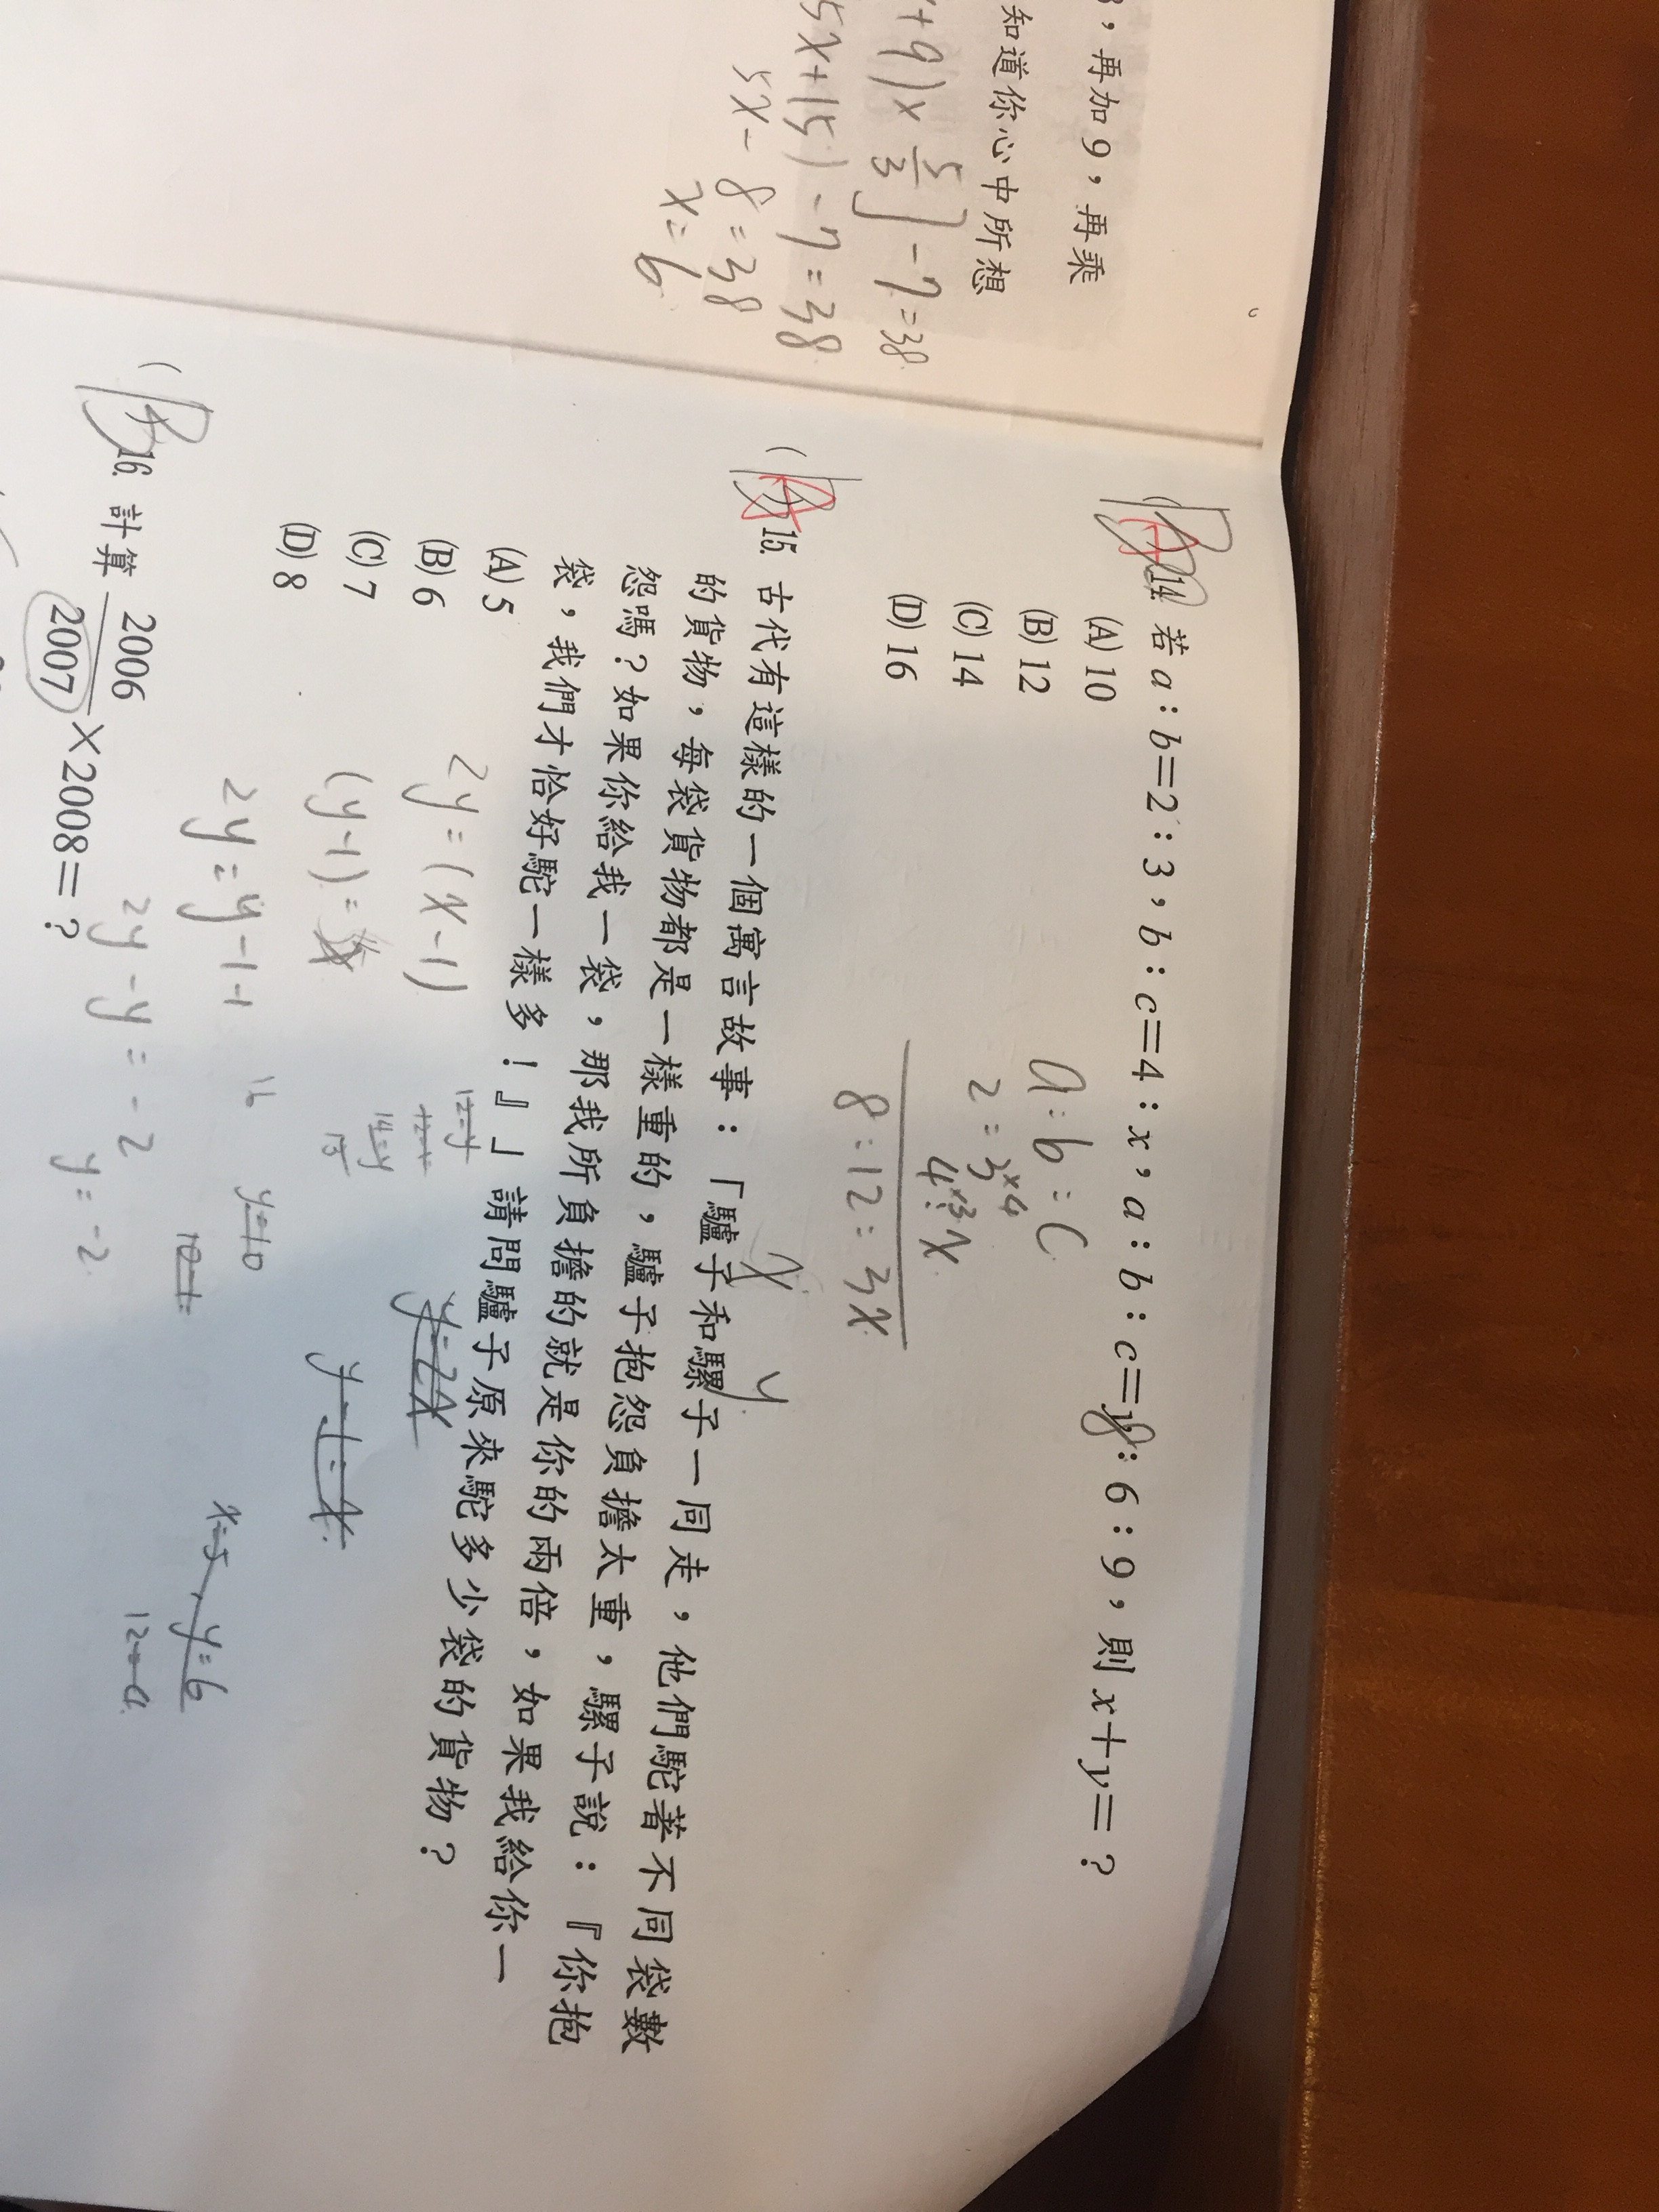 ，再加9，再乘
知道你心中所想
+9)×5/3]-7=38
5x+15)-7=38
5x-8=38
x=6
14. 若a：b=2：3，b：c=4：x，a：b：c=y：6：9，則x+y=？
(A) 10
(B) 12
(C) 14
(D) 16
a:b:c
2:3×4
4×3:x
8:12:3x
15. 古代有這樣的一個寓言故事：「驢子和騾子一同走，他們駝著不同袋數
的貨物，每袋貨物都是一樣重的，驢子抱怨負擔太重，騾子說：『你抱
怨嗎？如果你給我一袋，那我所負擔的就是你的兩倍，如果我給你一
袋，我們才恰好駝一樣多！』」請問驢子原來駝多少袋的貨物？
x
y
(A) 5
(B) 6
(C) 7
(D) 8
2y=(x-1)
(y-1)=
2y=y-1-1
2y-y=-2
y=-2
y=2x
y-1=x
x=5，y=6
16. 計算2006/2007×2008=？